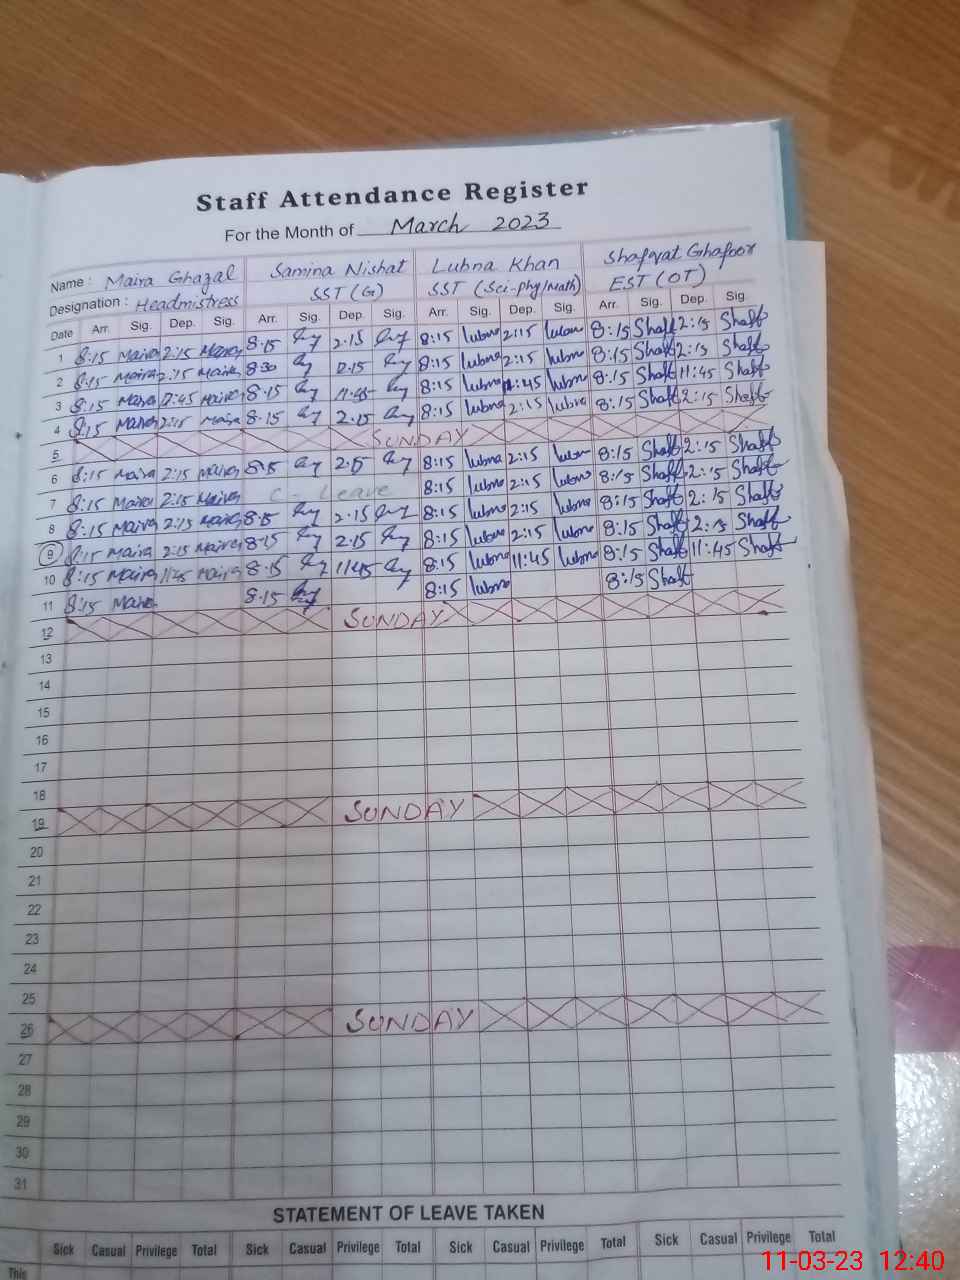 Staff Attendance Register
For the Month of March 2023
Name : Maira Ghazal Samina Nishat Lubna Khan Shafqat Ghafoor
Designation : Headmistress SST (G) SST (Sci-phy/Math) EST (OT)
Date Arr. Sig. Dep. Sig. Arr. Sig. Dep. Sig. Arr. Sig. Dep. Sig. Arr. Sig. Dep. Sig.
1 8:15 Maira 2:15 8:15 2:15 8:15 lubna 2:15 8:15 Shaft 2:15 Shaft
2 8:15 Maira 2:15 Maira 8:30 8:15 lubna 2:15 lubna 8:15 Shaft 2:15 Shaft
3 8:15 Maira 8:15 8:15 lubna lubna 8:15 Shaft 11:45 Shaft
4 8:15 Maira 2:15 Maira 8:15 2:15 8:15 lubna 2:15 lubna 8:15 Shaft 2:15 Shaft
5 SUNDAY
6 8:15 Maira 2:15 Maira 8:15 2:15 8:15 lubna 2:15 8:15 Shaft 2:15 Shaft
7 8:15 Maira 2:15 Maira C - Leave 8:15 lubna 2:15 lubna 8:15 Shaft 2:15 Shaft
8 8:15 Maira 2:15 Maira 8:15 2:15 8:15 lubna 2:15 lubna 8:15 Shaft 2:15 Shaft
9 8:15 Maira 2:15 Maira 8:15 2:15 8:15 lubna 2:15 lubna 8:15 Shaft 2:15 Shaft
10 8:15 Maira 11:45 Maira 8:15 11:45 8:15 lubna 11:45 lubna 8:15 Shaft 11:45 Shaft
11 8:15 Maira 8:15 8:15 lubna 8:15 Shaft
12 SUNDAY
13
14
15
16
17
18
19 SUNDAY
20
21
22
23
24
25
26 SUNDAY
27
28
29
30
31
STATEMENT OF LEAVE TAKEN
Sick Casual Privilege Total Sick Casual Privilege Total Sick Casual Privilege Total Sick Casual Privilege Total
This
11-03-23 12:40